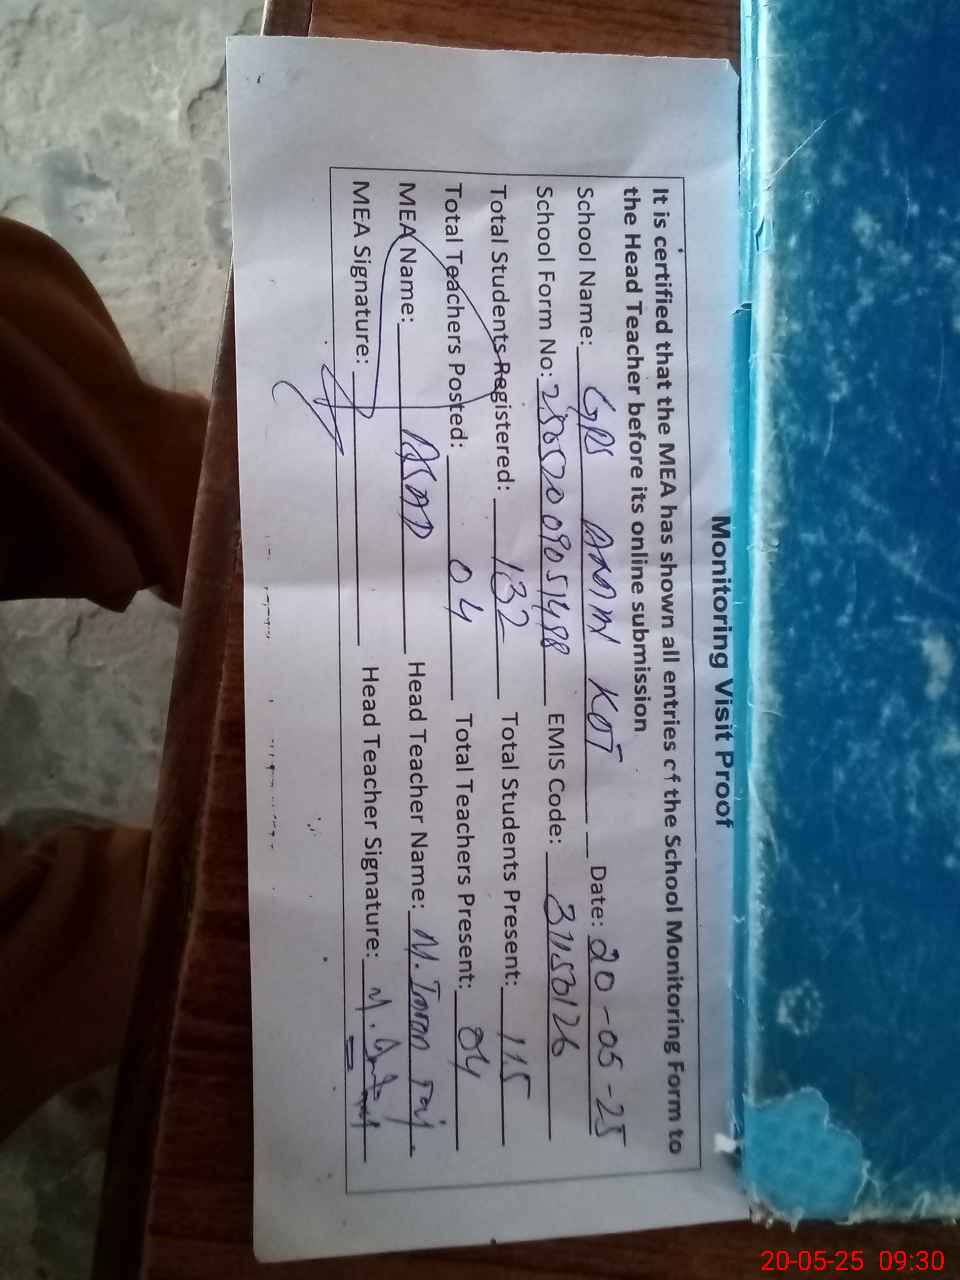 Monitoring Visit Proof
It is certified that the MEA has shown all entries of the School Monitoring Form to
the Head Teacher before its online submission
School Name: GPS AMIN KOT Date: 20-05-25
School Form No: EMIS Code: 31150126
Total Students Registered: 132 Total Students Present: 115
Total Teachers Posted: 04 Total Teachers Present: 04
MEA Name: ASAD Head Teacher Name: M. Imran Taj
MEA Signature: Head Teacher Signature:
20-05-25 09:30